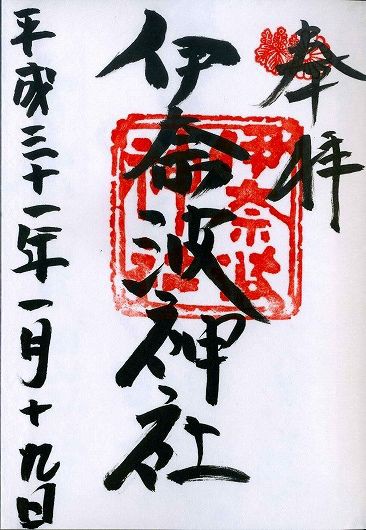 奉拝
伊奈波神社
伊奈波神社
平成三十一年一月十九日